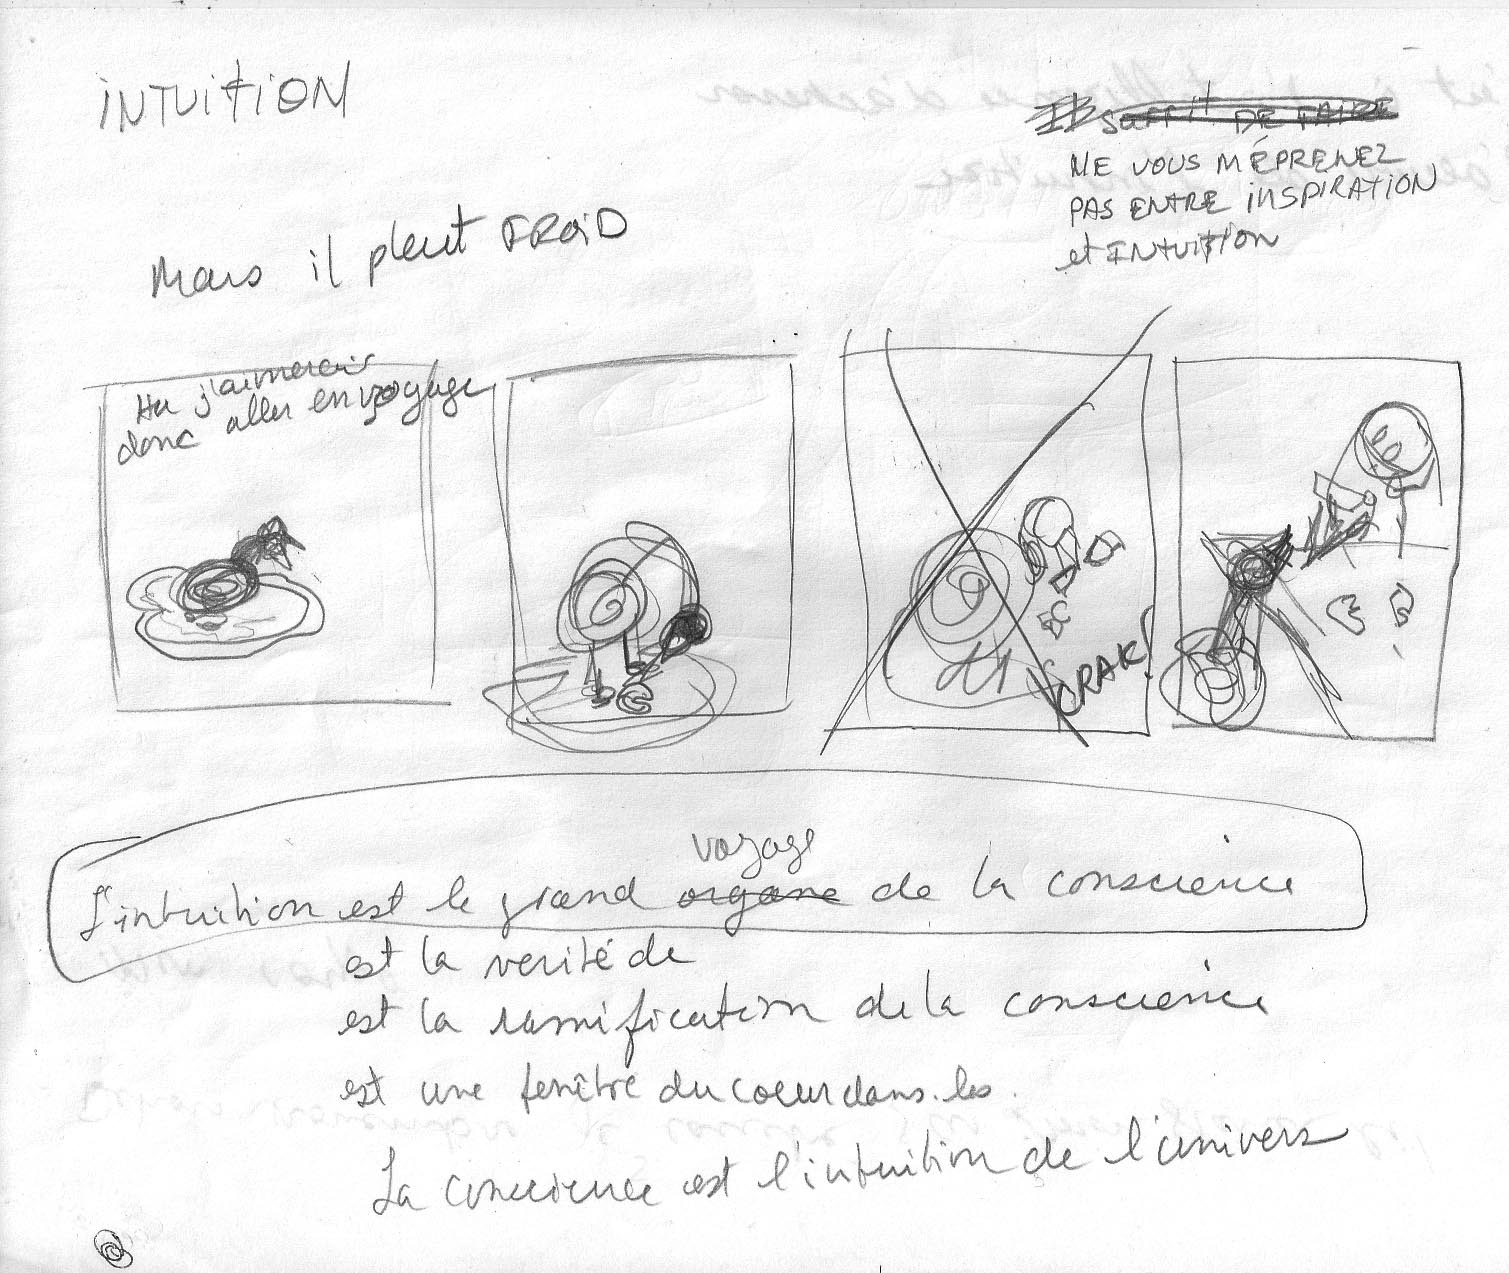 INTUITION
Il suffit DE FAIRE
NE VOUS MÉPRENEZ
PAS ENTRE INSPIRATION
et INTUITION
Mais il pleut FROID
Ha j'aimerais
donc aller en voyage
CRAK!
voyage
L'intuition est le grand organe de la conscience
est la verité de
est la ramification de la conscience
est une fenêtre du coeur dans les
La conscience est l'intuition de l'univers